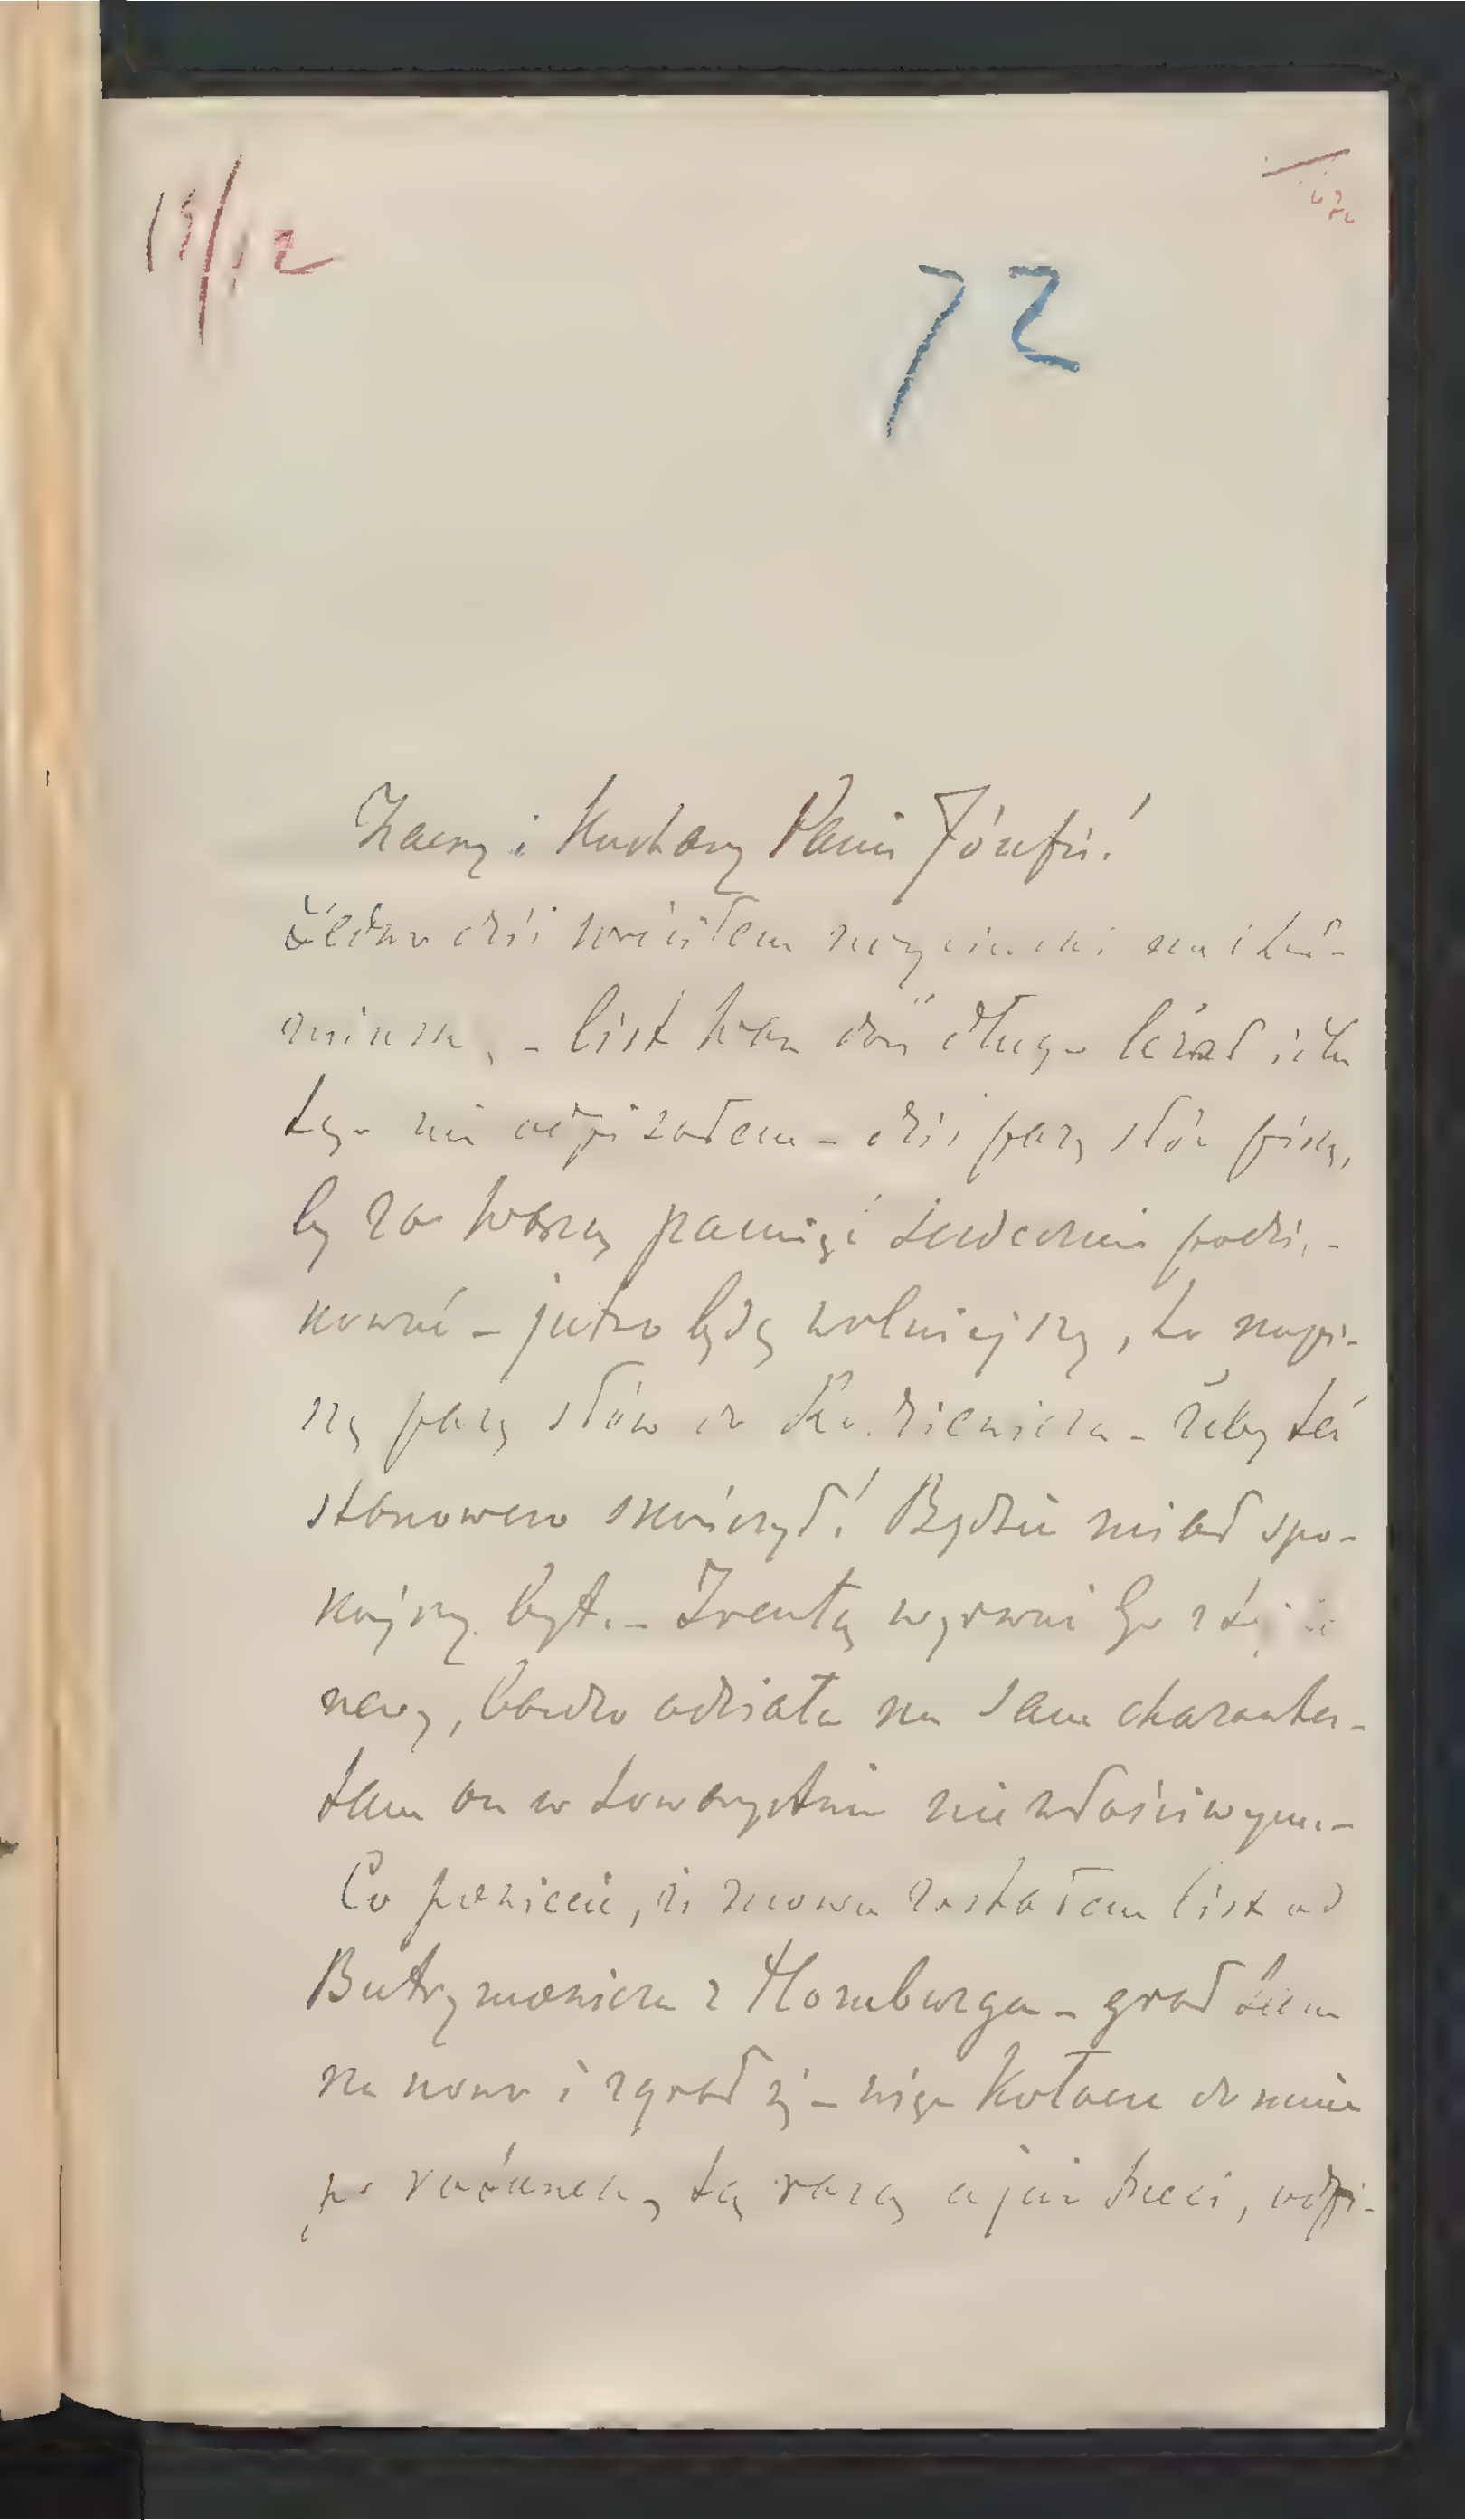 19/12
72
Zacny i Kochany Panie Józefie!
dziś wróciłem
list Wasz dość długo leżał i dla
tego nie odpisałem – dziś parę słów piszę,
by za Waszą pamięć serdecznie podzię-
kować – jutro będę wolniejszy, to napi-
szę parę słów do – żeby też
stanowczo skończył! Będzie miał spo-
kojny byt. – Zresztą wyrwie Go z tej
nery, bardzo odziała na sam charakter –
tam on w towarzystwie niewłaściwym. –
Co powiecie, iż znowu dostałem list od
Butrymowicza z Homburga – grał tam
na nowo i zgrał się – więc kołacze do mnie
po ratunek, tą razą a już trzeci, odpi-